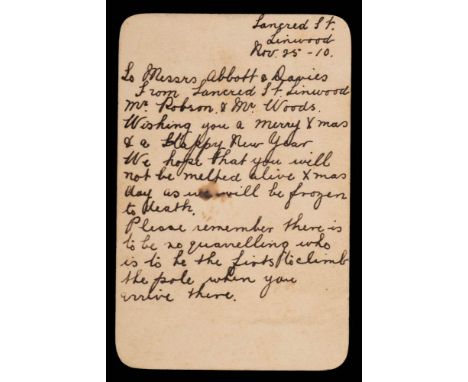 Tancred St.
Linwood
Nov. 25 - 10.
To Messrs Abbott & Davies
From Tancred St. Linwood
Mr. Robson. & Mr. Woods.
Wishing you a Merry Xmas
& a Happy New Year
We hope that you will
not be melted alive Xmas
day as we will be frozen
to death.
Please remember there is
to be no quarrelling who
is to be the firts to climb
the pole when you
arrive there.